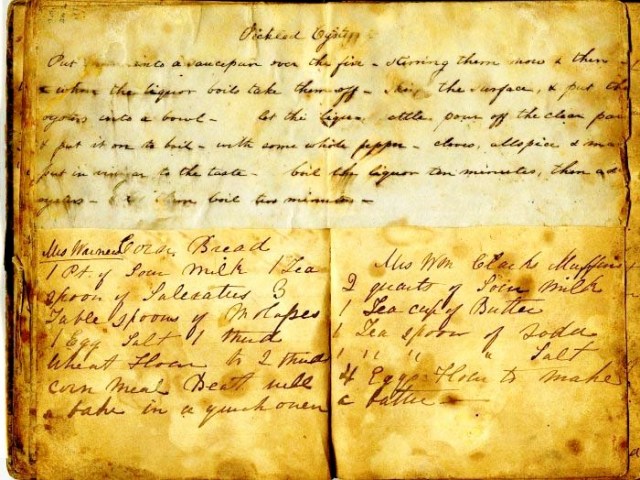 Pickled Oysters
Put into a saucepan over the fire - stirring them now & then -
& when the liquor boils take them off - skim the surface, & put the
oysters into a bowl - let the liquor settle pour off the clear part
& put it on to boil - with some whole pepper - cloves, allspice & ma
put in vinegar to the taste - boil the liquor ten minutes, then add
oysters - & boil two minutes -
Mrs Warners Corn Bread
1 Pt of Sour Milk 1 Tea
spoon of Saleratus 3
Table spoons of Molasses
1 Egg Salt 1 third
Wheat Flour to 2 third
corn meal Beat well
a bake in a quick oven
Mrs Wm Clarks Muffins
2 quarts of Sour Milk
1 Tea cup of Butter
1 Tea spoon of Soda
1 " " " Salt
4 Eggs Flour to make
a batter